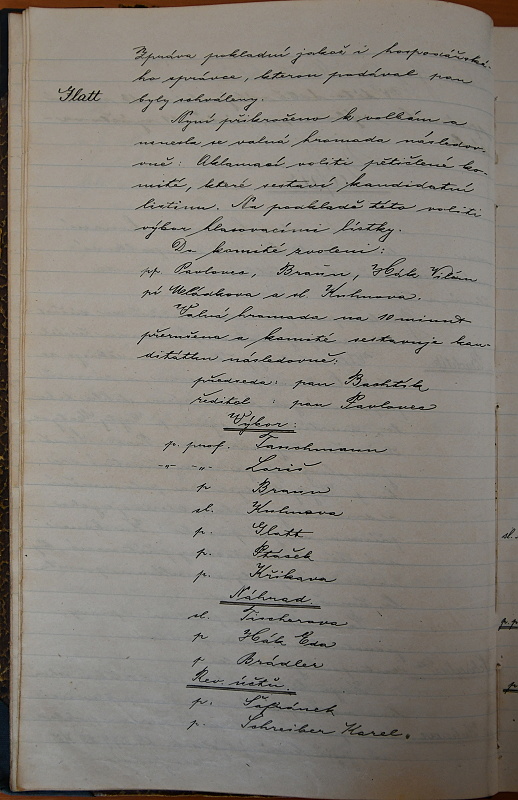 Zpráva pokladní jakož i hospodářské-
ho správce, kterou podával pan
Glatt byly schváleny.
Nyní přikročeno k volbám a
usnesla se valná hromada následov-
ně: Aklamací voliti pětičlenné ko-
mité, které sestaví kandidátní
listinu. Na podkladě této voliti
výbor hlasovacími lístky.
Do komité zvoleni:
pp. Pavlovec, Braun, Hák Vilém
pí Uhládkova a sl. Kulmova.
Valná hromada na 10 minut
přerušena a komité sestavuje kan-
ditátku následovně:
předseda: pan Bachtík
ředitel : pan Pavlovec
Výbor:
p. prof. Taschmann
-"- -"- Loriš
p Braun
sl. Kulmova
p. Glatt
p. Ptáček
p. Křikava
Náhrad.
sl. Tischerova
p Hák Eda
p Brádler
Rev. účtů.
p. Šafránek
p. Schreiber Karel.